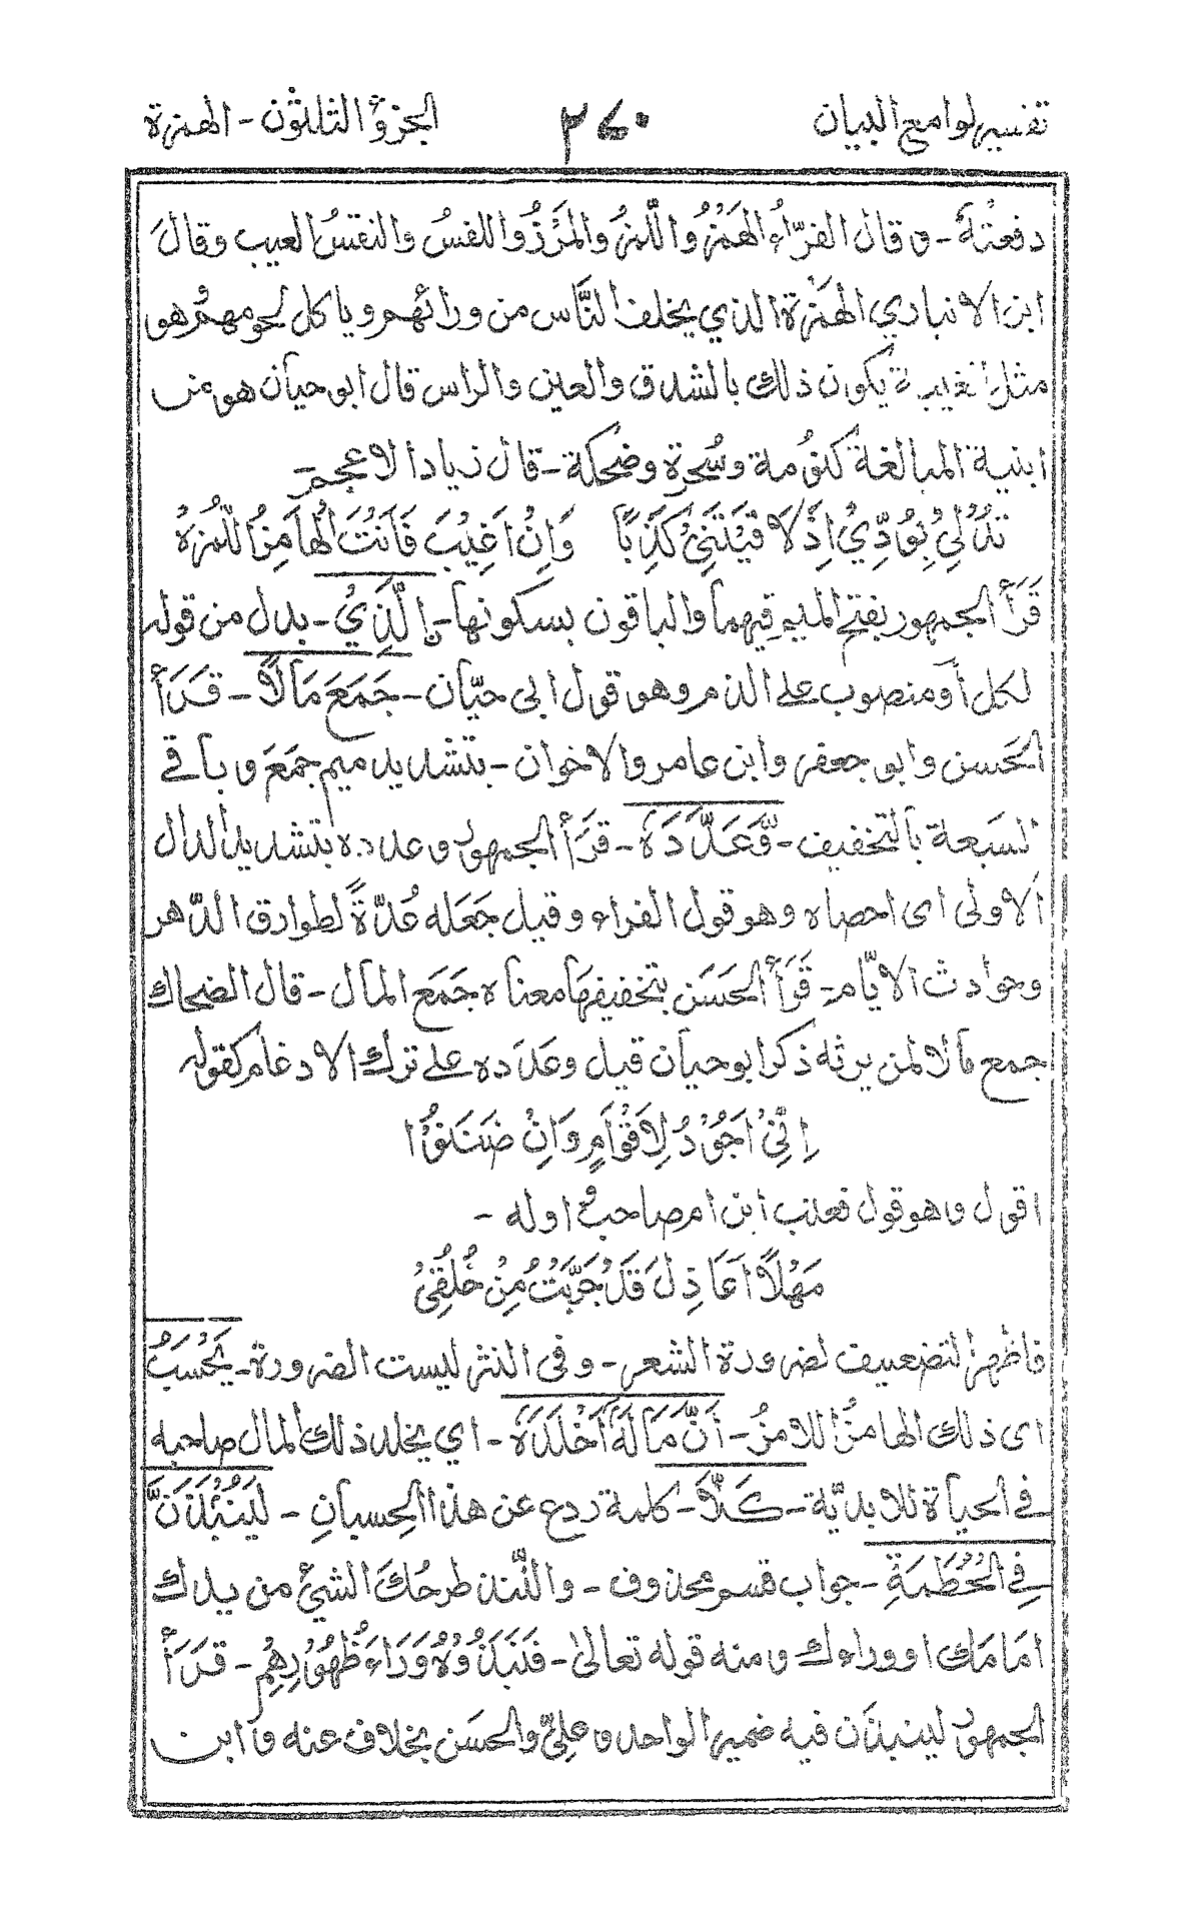 تفسير لوامع البيان ٣٧٠ الجزؤ الثلثون - الهمزة
دفعتهٗ - و قال الفرّاءُ الهَمْزُ والَّلمزُ والمَرْزُ واللقسُ والنقسُ العيب وقال
ابن الانباري الهُمَزة الذي يخلف النَّاس من ورائهم ويا كل لحومهم وهو
مثل الغيبة يكون ذلك بالشدق والعين والراس قال ابو حيان هو من
ابنية المبالغة كنوُمة وسُحرة وضحكة - قال زياد الاعجم -
تدْلِيْ بِوُدِّيْ اِذَا لَاقَيْتَنِيْ كَذِبًا وَاِنْ اُغَيَّبْ فَاَنْتَ الْهَامِزُ الُّلمَزَهْ
قَرَأَ الجمهور بفتح الميم فيهما والباقون بسكونها - نِ الَّذِيْ - بدل من قوله
لكل أو منصوب على الذم وهو قول ابى حيّان - جَمَعَ مَالًا - قَرَأَ
الحَسن وابو جعفر وابن عامر والاخوان - بتشديد ميم جمَعَ و باقى
السَبعة بالتخفيف - وَّعَدَّدَهٗ - قَرَأَ الجمهور و عدده بتشديد الدال
الاولى اى احصاه وهو قول الفراء و قيل جَعَله عُدَّةً لطوارق الدَّهر
وحوادث الايّام - قَرَأَ الحَسَن بتخفيفها معناه جَمَع المال - قال الضحاك
جمع مالا لمن يرثه ذكرا بو حيان قيل وعدّده على ترك الادغام كقوله
اِنِّيْ اَجُوْدُ لِاَقْوَامٍ وَاِنْ ضَنَنُوْا
اقول و هو قول قعنب ابن ام صاحب و اوله -
مَهْلًا اَعَاذِلَ قَدْ جَرَّبْتِ مِنْ خُلُقِيْ
فاظهر التضعيف لضرورة الشعر - و فى النثر ليست الضرورة - يَحْسَبُ
اى ذلك الهامزُ اللامزُ - اَنَّ مَالَهٗ اَخْلَدَهٗ - اي يخلد ذلك المال صاحبه
فى الحياة للابديّة - كَلَّا - كلمة ردع عن هذا الحِسبانِ - لَيُنْبَذَنَّ
فِى الْحُطَمَةِ - جواب قسم محذوف - والنَّبذ طرحُكَ الشيْ من يدك
امَامَك او وراءك و منه قوله تعالىٰ - فَنَبَذُوْهُ وَرَاءَ ظُهُوْرِهِمْ - قَرَأَ
الجمهور لينبذَن فيه ضمير الواحد و علِيٌّ والحَسَن بخلاف عنه و ابن